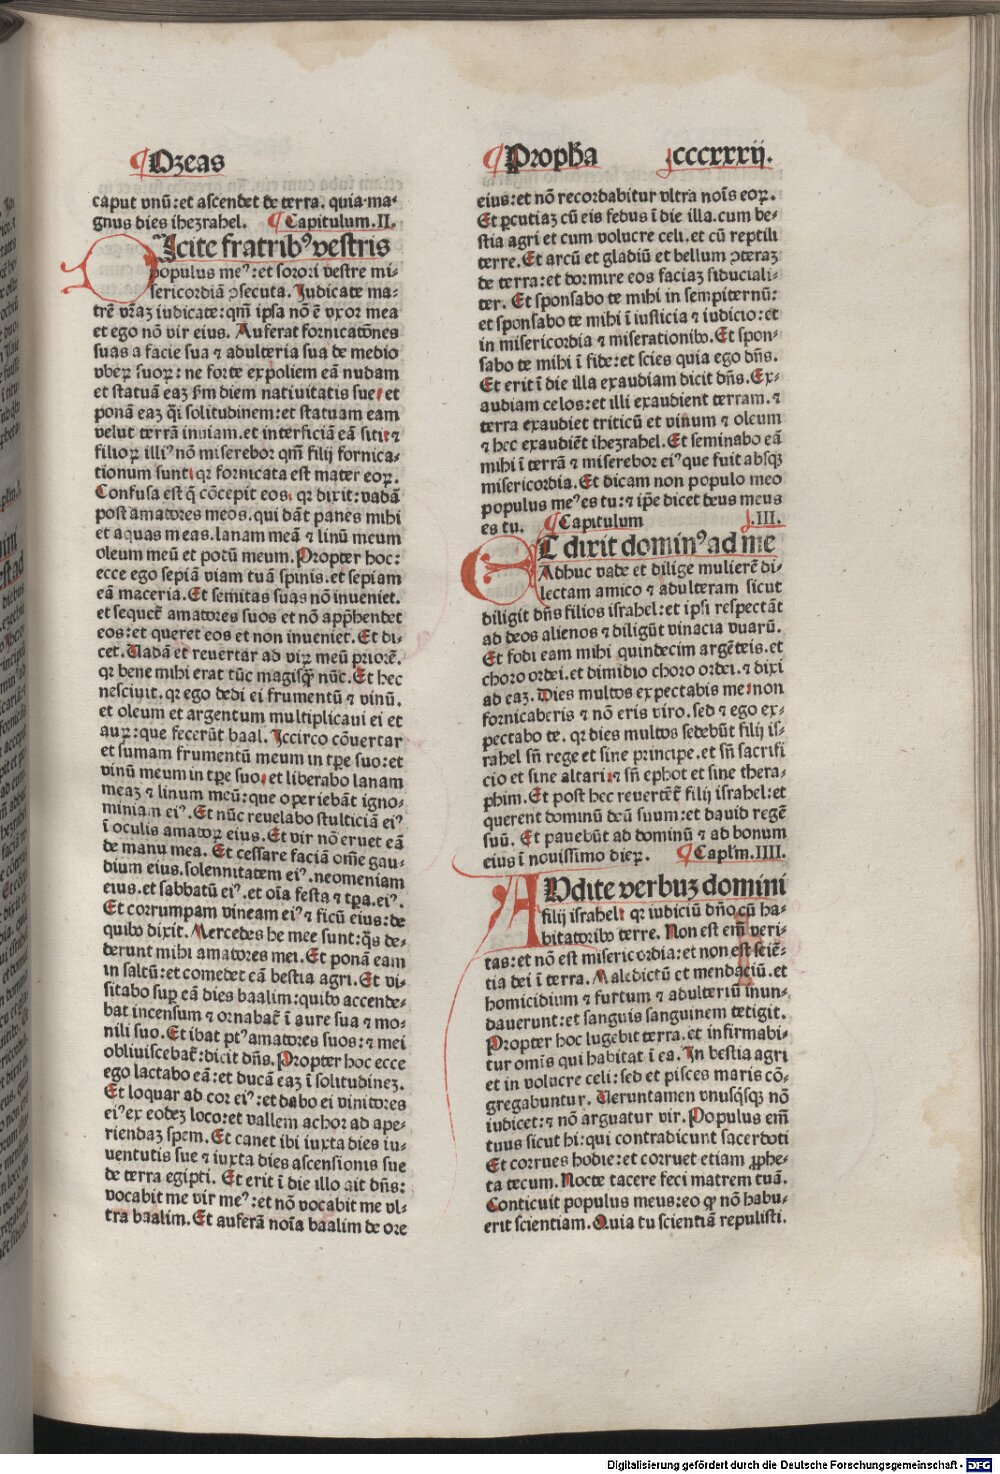 ¶Ozeas
caput vnū: et ascendet de terra. quia ma⸗
gnus dies ihezrahel. ¶Capitulum.II.
DIcite fratribꝰ vestris
populus meꝰ: et sorori vestre mi⸗
sericordiā ↄsecuta. Judicate ma⸗
trē vr̄aꝫ iudicate: qm̄ ipsa nō ē vxor mea
et ego nō vir eius. Auferat fornicatōnes
suas a facie sua ⁊ adulteria sua de medio
vbeꝝ suoꝝ: ne forte expoliem eā nudam
et statuā eaꝫ ẜm diem natiuitatis sue: et
ponā eaꝫ q̄i solitudinem: et statuam eam
velut terrā inuiam. et interficiā eā siti: ⁊
filioꝝ illiꝰ nō miserebor qm̄ filij fornica⸗
tionum sunt: qꝛ fornicata est mater eoꝝ.
Confusa est q̄ cōcepit eos. qꝛ dixit: vadā
post amatores meos. qui dāt panes mihi
et aquas meas. lanam meā ⁊ linū meum
oleum meū et potū meum. Propter hoc:
ecce ego sepiā viam tuā spinis. et sepiam
eā maceria. Et semitas suas nō inueniet.
et sequet᷑ amatores suos et nō app̄hendet
eos: et queret eos et non inueniet. Et di⸗
cet. Uadā et reuertar ad viꝝ meū priorē.
qꝛ bene mihi erat tūc magisq̄ꝫ nūc. Et hec
nesciuit. qꝛ ego dedi ei frumentū ⁊ vinū.
et oleum et argentum multiplicaui ei et
auꝝ: que fecerūt baal. Iccirco cōuertar
et sumam frumentū meum in tp̄e suo: et
vinū meum in tp̄e suo: et liberabo lanam
meaꝫ ⁊ linum meū: que operiebāt igno⸗
miniam eiꝰ. Et nūc reuelabo stulticiā eiꝰ
ī oculis amatoꝝ eius. Et vir nō eruet eā
de manu mea. Et cessare faciā om̄e gau⸗
dium eius. solennitatem eiꝰ. neomeniam
eius. et sabbatū eiꝰ. et oīa festa ⁊ tꝑa. eiꝰ.
Et corrumpam vineam eiꝰ ⁊ ficū eius: de
quibꝰ dixit. Mercedes he mee sunt: q̄s de⸗
derunt mihi amatores mei. Et ponā eam
in saltū: et comedet cā bestia agri. Et vi⸗
sitabo suꝑ eā dies baalim: quibꝰ accende⸗
bat incensum ⁊ ornabat᷑ ī aure sua ⁊ mo⸗
nili suo. Et ibat ptꝰ amatores suos: ⁊ mei
obliuiscebat᷑: dicit dn̄s. Propter hoc ecce
ego lactabo eā: et ducā eaꝫ ī solitudineꝫ.
Et loquar ad cor eiꝰ: et dabo ei vinitores
eiꝰ ex eodeꝫ loco: et vallem achor ad ape⸗
riendaꝫ spem. Et canet ibi iuxta dies iu⸗
uentutis sue ⁊ iuxta dies ascensionis sue
de terra egipti. Et erit ī die illo ait dn̄s:
vocabit me vir meꝰ: et nō vocabit me vl⸗
tra baalim. Et auferā noīa baalim de ore
¶Propha cccxxxij.
eius: et nō recordabitur vltra noīs eoꝝ.
Et ꝑcutiaꝫ cū eis fedus ī die illa. cum be⸗
stia agri et cum volucre celi. et cū reptili
terre. Et arcū et gladiū et bellum ↄteraꝫ
de terra: et dormire eos faciaꝫ fiduciali⸗
ter. Et sponsabo te mihi in sempiternū:
et sponsabo te mihi ī iusticia ⁊ iudicio: et
in misericordia ⁊ miserationibꝰ. Et spon⸗
sabo te mihi ī fide: et scies quia ego dn̄s.
Et erit ī die illa exaudiam dicit dn̄s. Ex⸗
audiam celos: et illi exaudient terram. ⁊
terra exaudiet triticū et vinum ⁊ oleum
⁊ hec exaudiēt ihezrahel. Et seminabo eā
mihi ī terrā ⁊ miserebor eiꝰ que fuit absqꝫ
misericordia. Et dicam non populo meo
populus meꝰ es tu: ⁊ ip̄e dicet deus meus
es tu. ¶Capitulum .III.
ET dixit dominꝰ ad me
Adhuc vade et dilige mulierē di⸗
lectam amico ⁊ adulteram sicut
diligit dn̄s filios israhel: et ipsi respectāt
ad deos alienos ⁊ diligūt vinacia vuarū.
Et fodi eam mihi quindecim argēteis. et
choro ordei. et dimidio choro ordei. ⁊ dixi
ad eaꝫ. Dies multos expectabis me: non
fornicaberis ⁊ nō eris viro. sed ⁊ ego ex⸗
pectabo te. qꝛ dies multos sedebūt filij is⸗
rahel sn̄ rege et sine principe. et sn̄ sacrifi
cio et sine altari: ⁊ sn̄ ephot et sine thera⸗
phim. Et post hec reuertēt᷑ filij israhel: et
querent dominū deū suum: et dauid regē
suū. Et pauebūt ad dominū ⁊ ad bonum
eius ī nouissimo dieꝝ. ¶Capl̄m.IIII.
AUdite verbuꝫ domini
filij israhel: qꝛ iudiciū dn̄o cū ha⸗
bitatoribꝰ terre. Non est em̄ veri⸗
tas: et nō est misericordia: et non est sciē⸗
tia dei ī terra. Maledictū et mendaciū. et
homicidium ⁊ furtum ⁊ adulteriū inun⸗
dauerunt: et sanguis sanguinem tetigit.
Propter hoc lugebit terra. et infirmabi⸗
tur om̄is qui habitat ī ea. In bestia agri
et in volucre celi: sed et pisces maris cō⸗
gregabuntur. Ueruntamen vnusq̄sqꝫ nō
iudicet: ⁊ nō arguatur vir. Populus em̄
tuus sicut hi: qui contradicunt sacerdoti
Et corrues hodie: et corruet etiam ꝓphe⸗
ta tecum. Nocte tacere feci matrem tuā.
Conticuit populus meus: eo ꝙ nō habu⸗
erit scientiam. Quia tu scientiā repulisti.
Digitalisierung gefördert durch die Deutsche Forschungsgemeinschaft - DFG